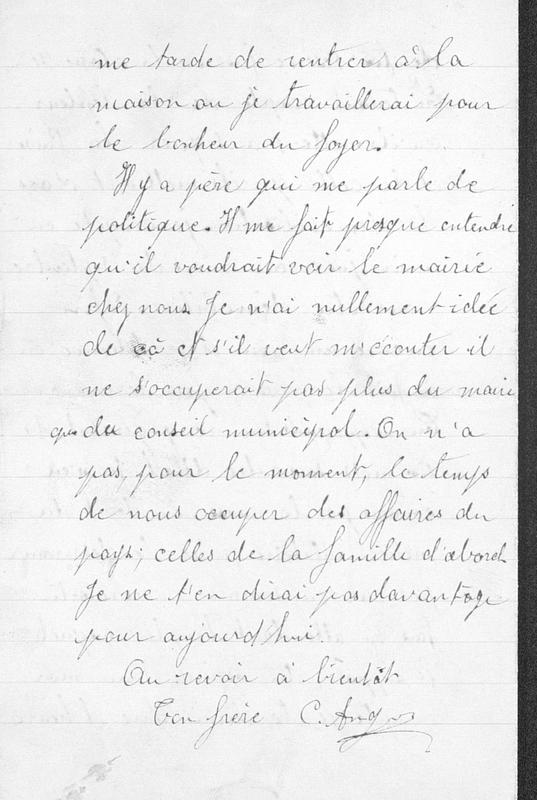 me tarde de rentrer à la
maison ou je travaillerai pour
le bonheur du foyer.
Il y a père qui me parle de
politique. Il me fait presque entendre
qu'il voudrait voir le mairie
chez nous. Je n'ai nullement idée
de çà et s'il veut m'écouter il
ne s'occuperait pas plus du maire
que du conseil municipal. On n'a
pas, pour le moment, le temps
de nous occuper des affaires du
pays; celles de la famille d'abord
Je ne t'en dirai pas davantage
pour aujourd'hui.
Au revoir à bientôt
Ton frère C.